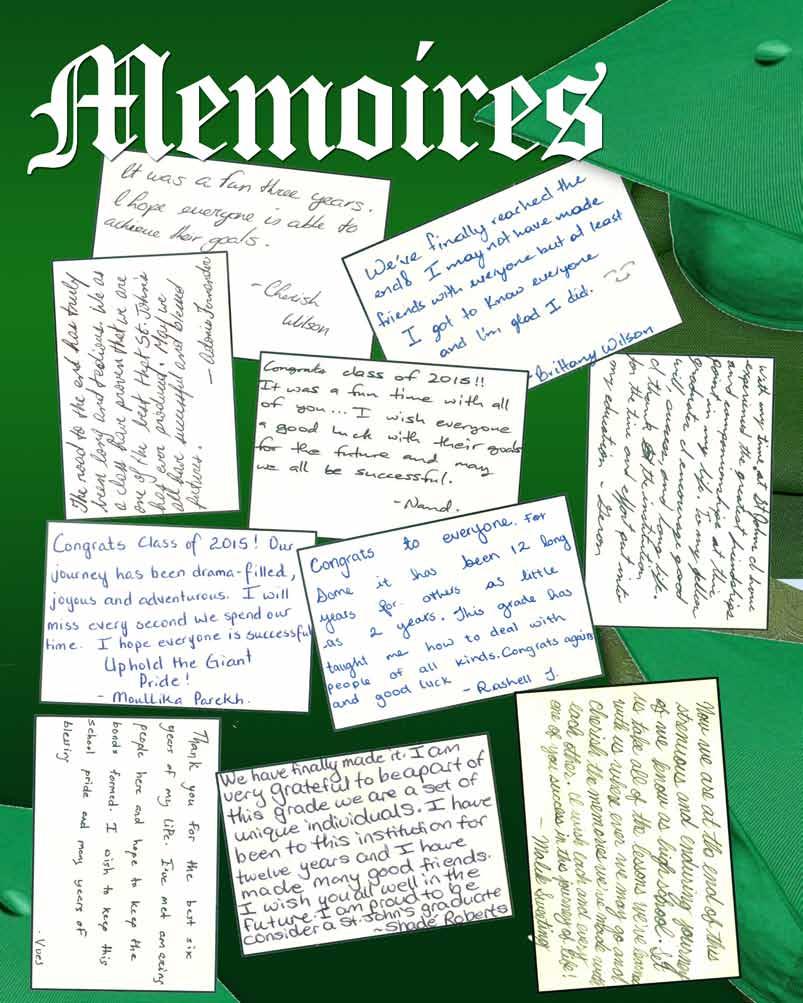 Memoires
It was a fun three years.
I hope everyone is able to
achieve their goals.
- Cherish
Wilson
We've finally reached the
end! I may not have made
friends with everyone but at least
I got to know everyone
and I'm glad I did.
- Brittany Wilson
The road to the end has truly
been long and tedious. We as
a class have proven that we are
one of the best Hept St. John's
has ever produced. May we
all have successful and blessed
futures.
- Fernander
Congrats class of 2015!!
It was a fun time with all
of you... I wish everyone
a good luck with their goals
for the future and may
we all be successful.
- Nand.
With my time at St John's I have
experienced the greatest friendships
and companionships at this
point in my life. To my fellow
graduates, I encourage good
will, success, and long life.
I thank the institution
for the time and effort put into
my education -
Congrats Class of 2015! Our
journey has been drama-filled,
joyous and adventurous. I will
miss every second we spend our
time. I hope everyone is successful
Uphold the Giant
Pride!
- Moullika Parekh.
Congrats to everyone. For
Some it has been 12 long
years for others as little
as 2 years. This grade has
taught me how to deal with
people of all kinds. Congrats again
and good luck - Rashell J.
Thank you for the best six
years of my life. I've met amazing
people here and hope to keep the
bonds formed. I wish to keep this
school pride and many years of
blessing
We have finally made it. I am
very grateful to be apart of
this grade we are a set of
unique individuals. I have
been to this institution for
twelve years and I have
made many good friends.
I wish you all well in the
future. I am proud to be
consider a St. John's graduate
~Shade Roberts
Now we are at the end of this
strenuous and enduring journey
we know as high school. Let
us take all of the lessons we've learned
with us where ever we may go and
cherish the memories we've made with
each other. I wish each and every
one of you success in this journey of life!